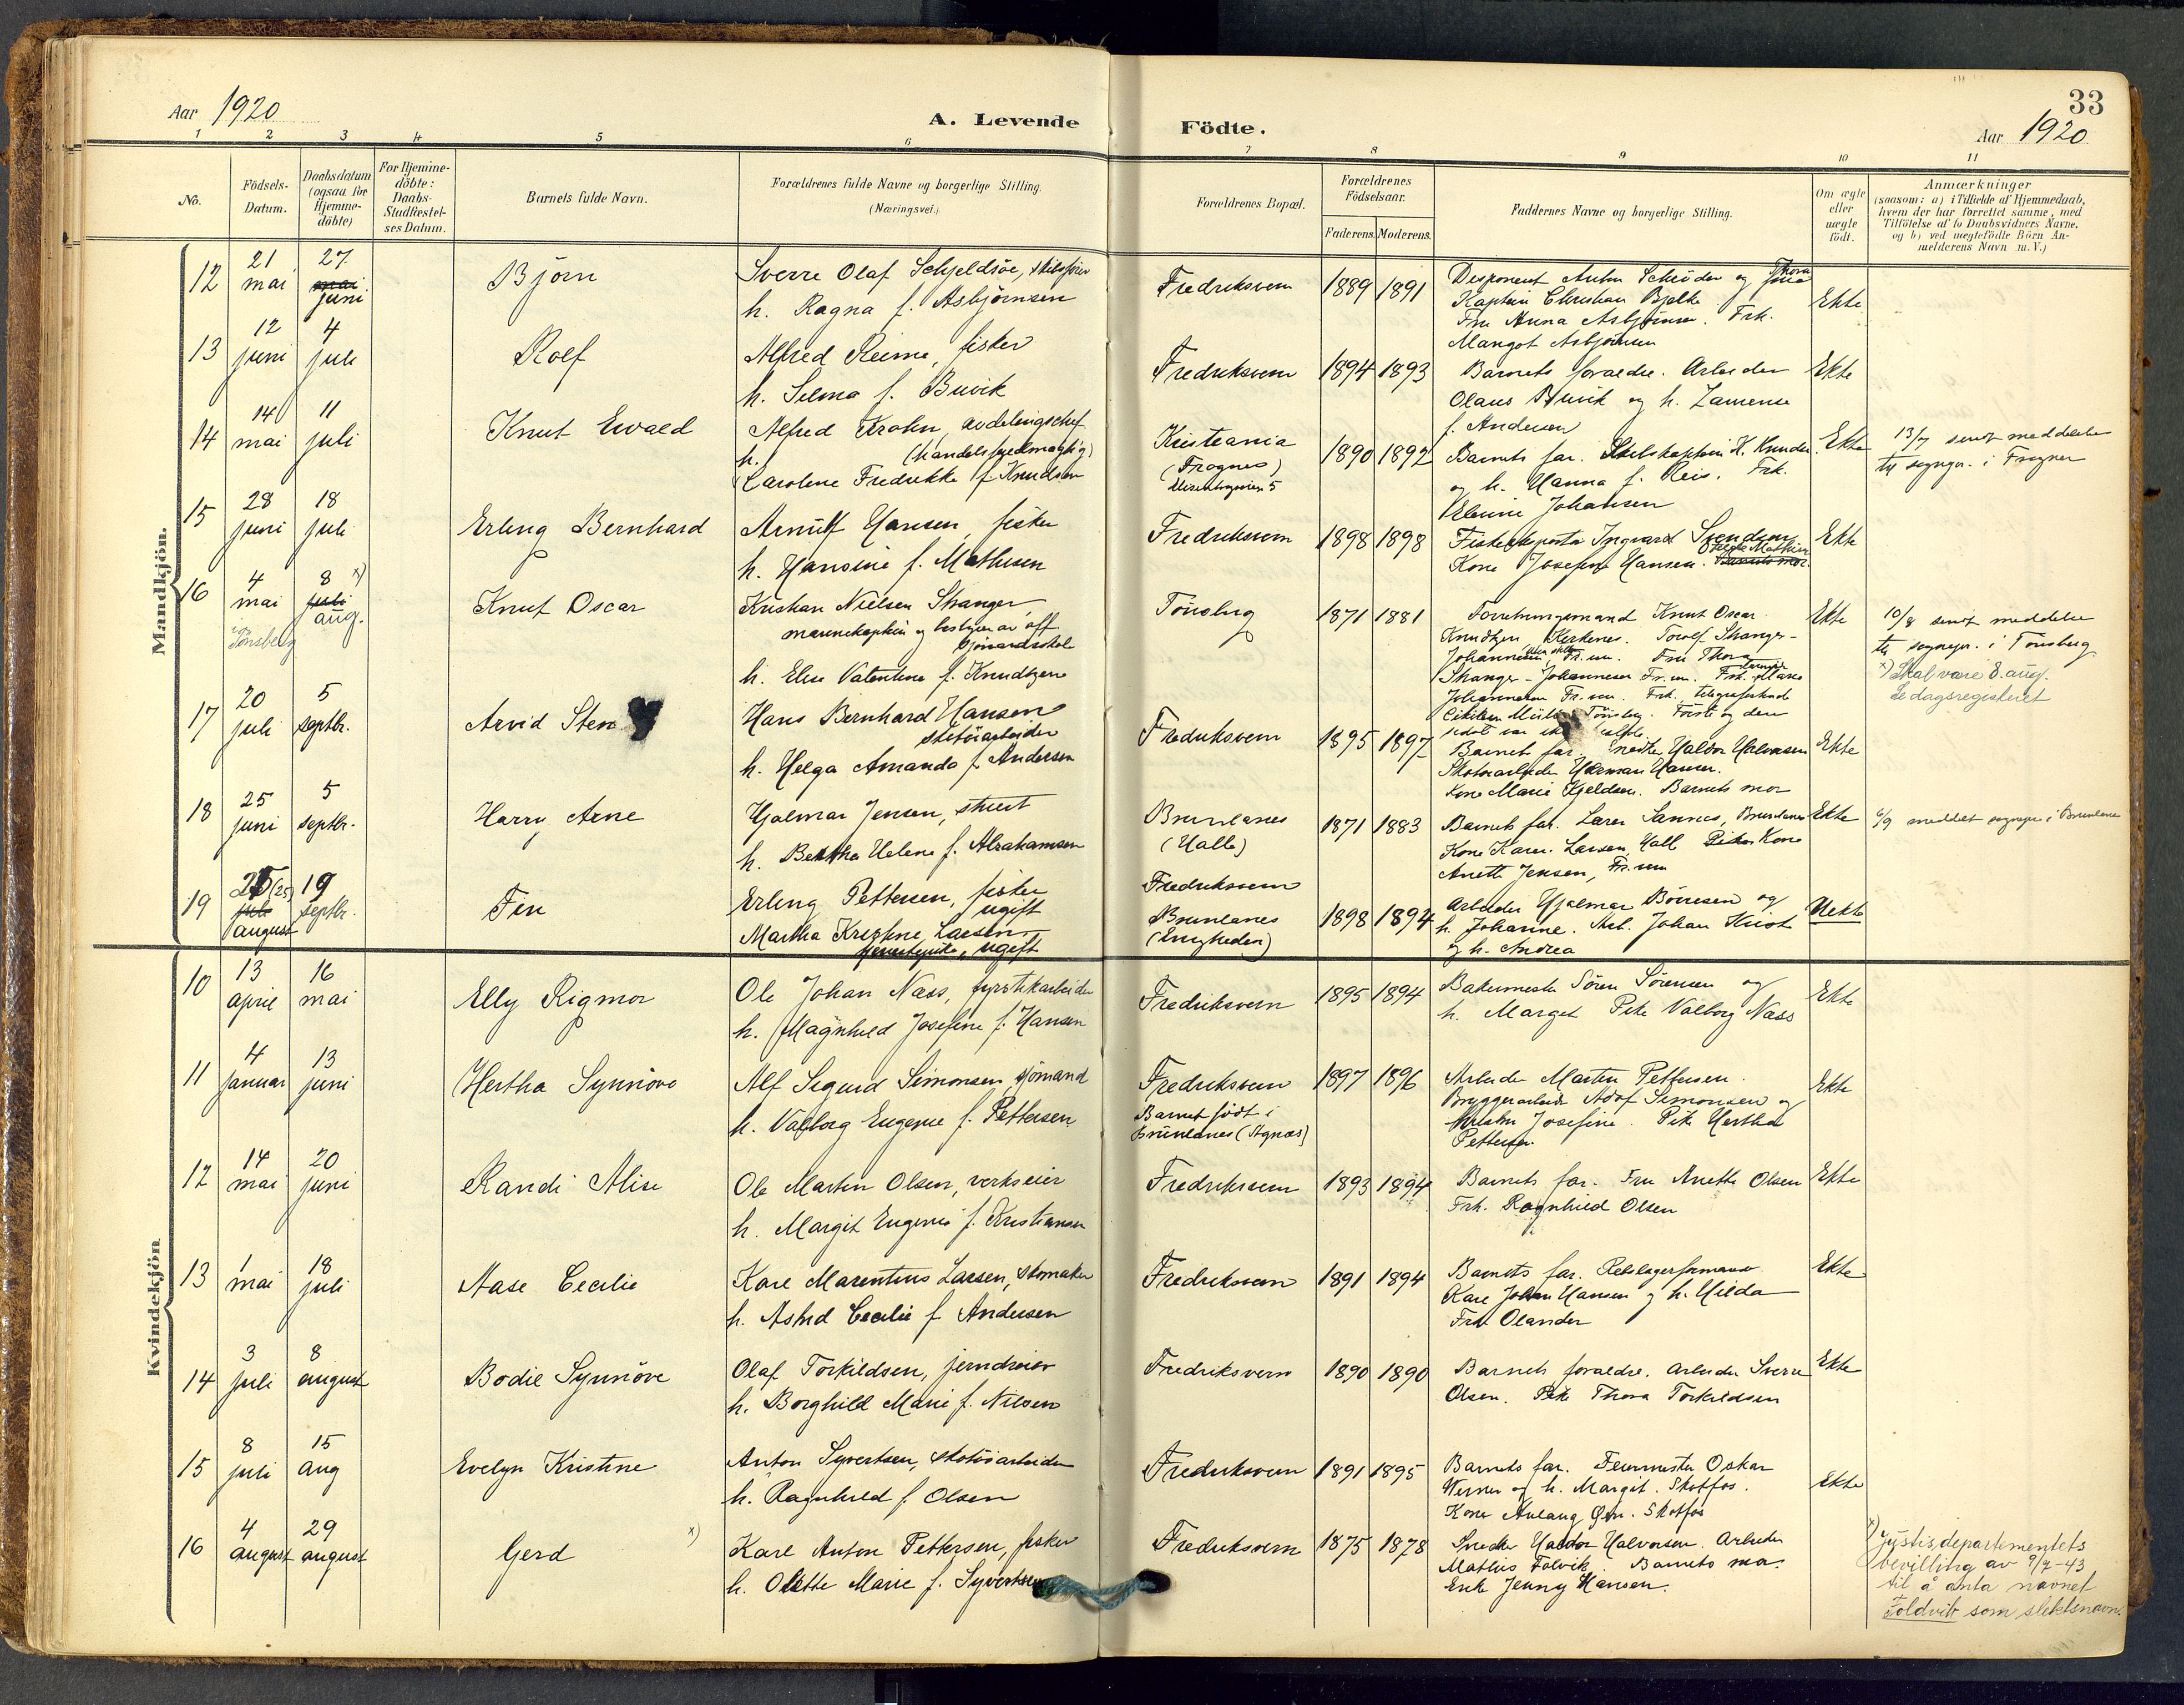 33
Aar 1920
A. Levende Födte.
Aar 1920
1 2 3 4 5 6 7 8 9 10 11
No.
Födsels-Datum.
Daabsdatum (ogsaa for Hjemme-döbte)
For Hjemme-döbte: Daabs-Stadfæstel-ses Datum.
Barnets fulde Navn.
Forældrenes fulde Navne og borgerlige Stilling.
(Næringsvei.)
Forældrenes Bopæl.
Forældrenes Födselsaar.
Faderens. Moderens.
Faddernes Navne og borgerlige Stilling.
Om ægte eller uægte födt.
Anmærkninger
(saasom: a) i Tilfælde af Hjemmedaab,
hvem der har forrettet samme, med
Tilföielse af to Daabsvidners Navne,
og b) ved uægtefödte Börn An-
melderens Navn m. V.)
Mandkjön.
12 21 mai 27 mai juni Björn
Sverre Olaf Schjeldsöe, skibsfører
h. Ragna f. Asbjørnsen
Fredriksvern 1889 1891
Disponent Anton Schröder og Thora
Kaptein Christian Bjelke
Fru Anna Asbjörnsen. Frk.
Margot Asbjörnsen
Ekte
13 12 juni 4 juli Rolf
Alfred Reime, fisker
h. Selma f. Buvik
Fredriksvern 1894 1893
Barnets foraeldre. Arbeider
Olaus Buvik og h.
f. Andersen
Ekte
14 14 mai 11 juli Knut Ewald
Alfred Krohn, avdelingschef
h. (handelsfuldmægtig)
Caroline Fredrikke f. Knudsen
Kristiania
(Frogner)
5
1890 1892
Barnets far. Skibskaptein H. Knudsen
og h. Hanna f. Reis. Frk.
Johansen
Ekte
13/7 sendt meddelelse
til sognepr. i Frogner
15 28 juni 18 juli Erling Bernhard
Arnulf Hansen, fisker
h. Hansine f. Mathisen
Fredriksvern 1898 1898
Fiskeeksportør Ingvard Svendsen
Kone Josefine Hansen. Barnets mor.
Ekte
16 4 mai 8 juli aug. x) Tönsberg Knut Oscar
Kristian Nielsen Stranger,
marinekaptein og bestyrer av off.
sjømandsskole
h. Elise Valentine f. Knudtzen
Tönsberg 1871 1881
Forretningsmand Knut Oscar
Knudtzen, Kirkenes. Torolf Stranger-
Johannesen, Fr.vern. Fru Thora
Stranger-Johannesen Fr.vern. Frk.
Johannesen Fr.vern. Frk.
Tönsberg. Første og den
sidst var ikke tilstede.
Ekte
10/8 sendt meddelelse
til sognepr. i Tönsberg.
x) Skal være 8. aug.
Se dagsregisteret
17 20 juli 5 septbr. Arvid Sten
Hans Bernhard Hansen
skotøiarbeider
h. Helga Amanda f. Andersen
Fredriksvern 1895 1897
Barnets far. Snedker Haldor Halvorsen
Skotøiarbeider Herman Hansen.
Kone Marie Kjeldsen. Barnets mor
Ekte
18 25 juni 5 septbr. Harry Arne
Hjalmar Jensen, stuert
h. Bertha Helene f. Abrahamsen
Brunlanes
(Halle)
1871 1883
Barnets far. Lærer Sannes, Brunlanes
Kone Karen Larsen, Hall Kone
Anette Jensen, Fr.vern
Ekte
6/9 meddelt sognepr. i Brunlanes
19 25 (25) juli august 19 septbr. Fin
Erling Pettersen, fisker
ugift
Martha Kristine Larsen
tjenestepike, ugift
Fredriksvern
Brunlanes
(Enigheden)
1898 1894
Arbeider Hjalmar Börresen og
h. Johanne. Arb. Johan Krist
og h. Andrea
Uekte
Kvindekjön
10 13 april 16 mai Elly Rigmor
Ole Johan Næss, fyrstikarbeider
h. Magnhild Josefine f. Hansen
Fredriksvern 1895 1894
Bakermester Sören Sörensen og
h. Margit Pike Valborg Næss
Ekte
11 4 januar 13 juni Hertha Synnöve
Alf Sigurd Simonsen, sjömand
h. Valborg Eugenie f. Pettersen
Fredriksvern
Barnet født i
Brunlanes (Agnæs)
1897 1896
Arbeider Martin Pettersen.
Bryggeriarbeider Adolf Simonsen og
hustru Josefine. Pike Hertha
Pettersen.
Ekte
12 14 mai 20 juni Randi Alise
Ole Martin Olsen, verkseier
h. Margit Eugenie f. Kristiansen
Fredriksvern 1893 1894
Barnets far. Fru Anette Olsen
Frk. Ragnhild Olsen
Ekte
13 1 mai 18 juli Aase Cecilie
Kare Marentius Larsen, skomaker
h. Astrid Cecilie f. Andersen
Fredriksvern 1891 1894
Barnets far. Rebslagerformand
Kare Johan Hansen og h. Hilda
Fru Olander
Ekte
14 3 juli 8 august Bodil Synnöve
Olaf Torkildsen, jerndreier
h. Borghild Marie f. Nilsen
Fredriksvern 1890 1890
Barnets foraeldre. Arbeider Sverre
Olsen. Pike Thora Torkildsen
Ekte
15 8 juli 15 aug Evelyn Kristine
Anton Syvertsen, skotøiarbeider
h. Ragnhild f. Olsen
Fredriksvern 1891 1895
Barnets far. Feiermester Oskar
Werner og h. Margit. Skotfos.
Kone Aslaug Skotfos
Ekte
16 4 august 29 august Gerd x)
Karl Anton Pettersen, fisker
h. Olette Marie f. Syvertsen
Fredriksvern 1875 1878
Snedker Haldor Halvorsen. Arbeider
Mathis Folvik. Barnets mor.
Enke Jenny Hansen.
x) Justisdepartementets
bevilling av 9/7-43
til å anta navnet
Foldvik som slektsnavn.